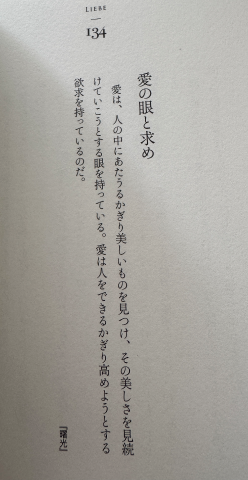 LIEBE
134
愛の眼と求め
愛は、人の中にあたうるかぎり美しいものを見つけ、その美しさを見続
けていこうとする眼を持っている。愛は人をできるかぎり高めようとする
欲求を持っているのだ。
『曙光』